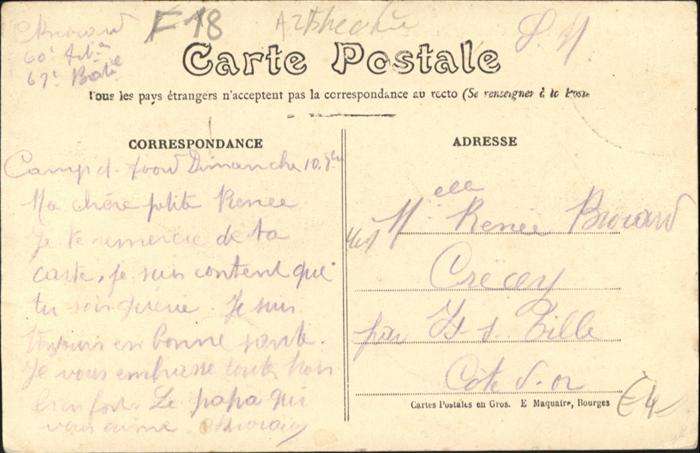 60e Art
67e Bat
F 18
S. M.
Carte Postale
Tous les pays étrangers n'acceptent pas la correspondance au recto (Se renseigner à la Poste
CORRESPONDANCE
Camp d' Avord Dimanche 10
Ma chère petite Renée
Je te remercie de ta
carte, je suis content que
tu sois guérie. Je suis
toujours en bonne santé.
Je vous embrasse toute
bien fort. Le papa qui
vous aime
ADRESSE
Melle Renée Brocard
Crécey
par Is s Tille
Côte d'or
Cartes Postales en Gros. E Maquaire, Bourges
£4-